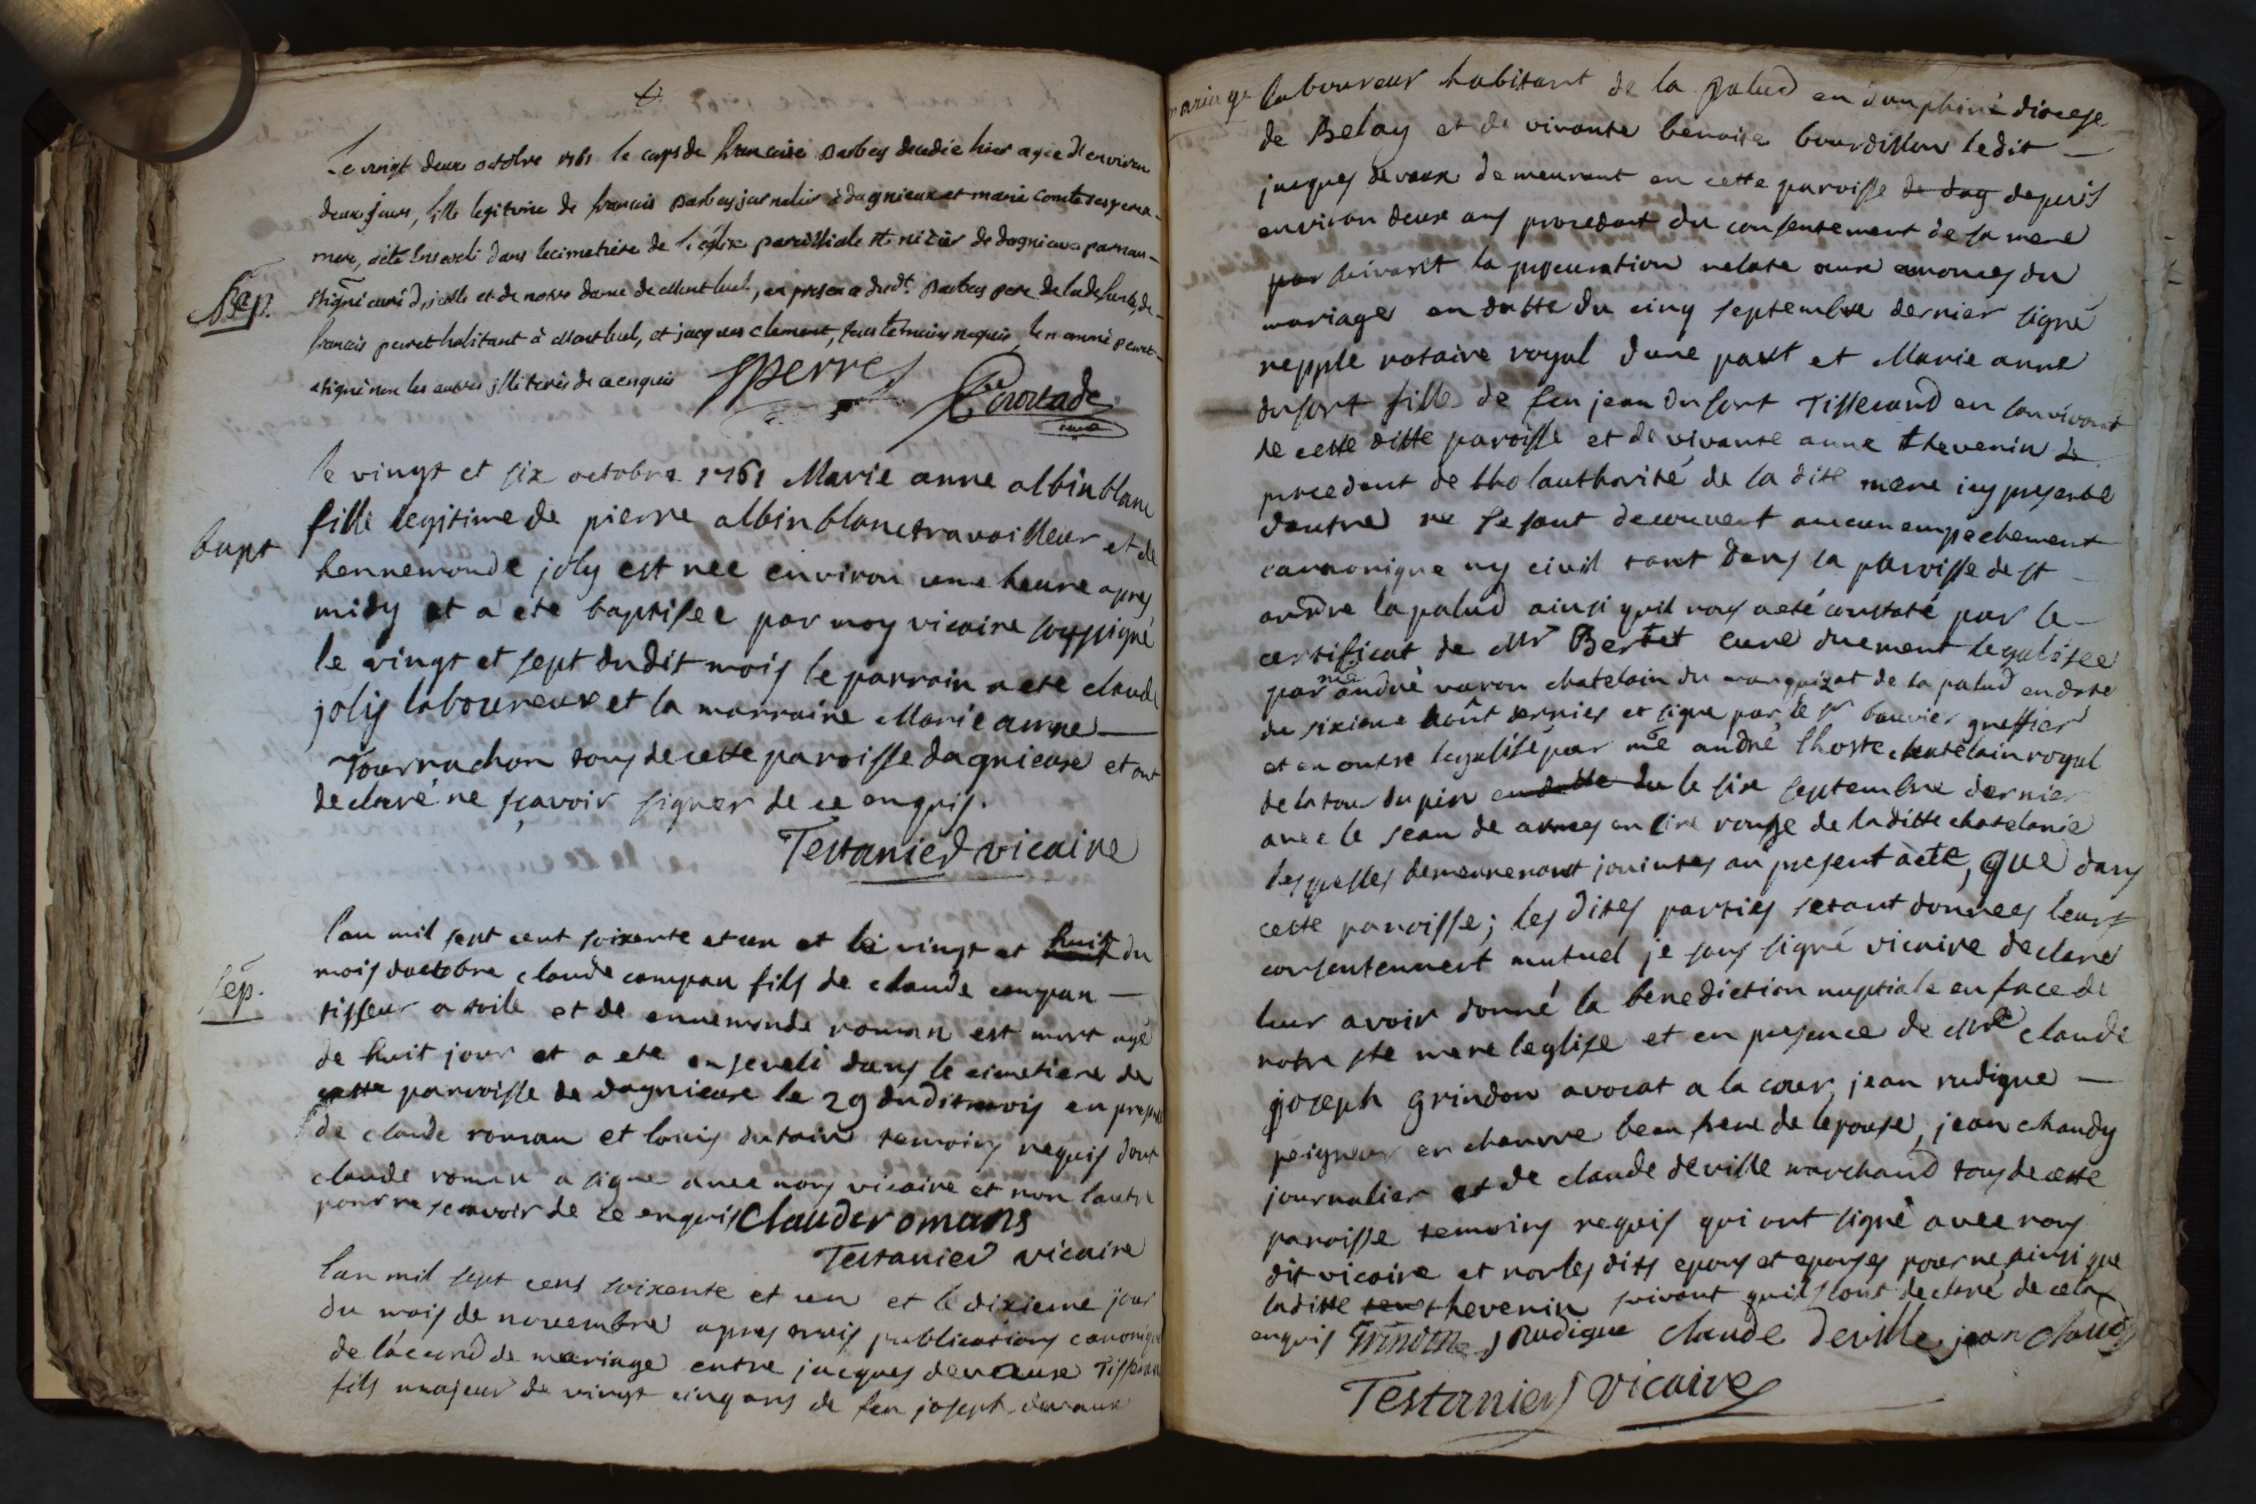 Le vingt deux octobre 1761 le corps de francoise Barbey decedée hier agée d'environ
deux jours, fille legitime de francois Barbey journalier à dagnieux et marie comte ses pere et
mere, a été enseveli dans le cimetière de l'eglise paroissiale st nicier de dagnieux par nous
Sep.
soussigné curé et de notre dame de Montluel, en presence dudt. Barbey pere de la defunte, de
francois perret habitant à Montluel, et jacques clement, tous temoins requis, le nommé perret
a signé non les autres illiterés de ce enquis
Perret
Courtade
curé
le vingt et six octobre 1761 Marie anne albin blanc
fille legitime de pierre albin blanc travailleur et de
bapt
hennemonde joly est née environ une heure apres
midy et a eté baptisée par moy vicaire soussigné
le vingt et sept dudit mois le parrain a eté claude
joly laboureur et la marraine Marie anne
Tourrachon tous de cette paroisse dagnieux et ont
declaré ne sçavoir signer de ce enquis.
Testanier vicaire
lan mil sept cent soixente et un et le vingt et huit du
sep.
mois doctobre claude compan fils de claude compan
tisseur a toile et de ennemonde roman est mort agé
de huit jour et a eté enseveli dans le cimetiere de
cette parroisse de dagnieux le 29 dudit mois en presence
de claude roman et louis dutain temoins requis dont
claude roman a signé avec nous vicaire et non lautre
pour ne scavoir de ce enquis Claude romans
Testanier vicaire
lan mil sept cens soixente et un et le dixieme jour
du mois de novembre apres trois publications canonique
de lacord de mariage entre jacques devaux Tisseran
fils majeur de vingt cinq ans de feu joseph devaux
mariage
laboureur habitant de la palud en dauphiné diocese
de Belay et de vivante benoite bourdillon ledit
jacques devaux demeurant en cette paroisse de dag depuis
environ deux ans procedant du consentement de sa mere
par suivant la procuration relate aux annonces du
mariage en datte du cinq septembre dernier signé
repple notaire royal dune part et Marie anne
dufort fille de feu jean dufort Tisserand en son vivant
de cette ditte paroisse et de vivante anne thevenin de
procedant de lauthorité de la dite mere icy presente
dautre ne se sont decouvert aucun empechement
cannonique ny civil tant dans la parroisse de st
andre la palud ainsi quil nous a eté constaté par le
certificat de Mr Bertet curé duement legalisée
par me andré varon chatelain du marquizat de la palud en date
du sixieme août dernier et signé par le sr bouvier greffier
et en outre legalisé par me andré lhoste chatelain royal
de la tour du pin en datte du le six septembre dernier
avec le seau de armes en cire rouge de laditte chatelanie
lesquelles demeureront jointes au present acte, que dans
cette paroisse; les dites parties setant données leurs
consentement mutuel je sous signé vicaire declare
leur avoir donné la benediction nuptiale en face de
notre ste mere leglise et en presence de Mre claude
joseph Grindon avocat a la cour, jean rudigue
peigneur en chanvre beau frere de lepouse, jean chaudy
journalier et de claude deville marchand tous de cette
paroisse temoins requis qui ont signé avec nous
dit vicaire et non les dits epoux et epouses pour ne ainsi que
laditte thevenin suivant quils lont declaré de cela
enquis Grindon J Rudigue claude deville jean chaudy
Testanier vicaire